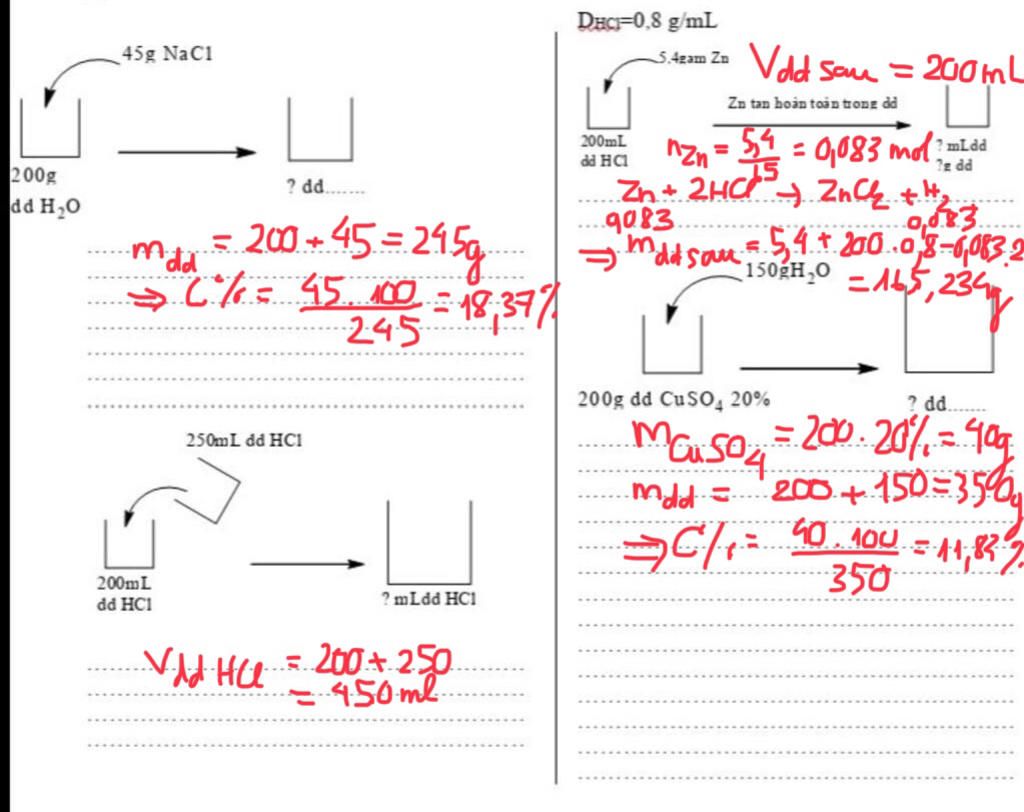 45g NaCl
200g
dd H₂O
? dd.......
m dd = 200 + 45 = 245g
⇒ C% = 45.100 / 245 = 18,37%
250mL dd HCl
200mL
dd HCl
? mLdd HCl
V dd HCl = 200 + 250
= 450 ml
D HCl=0,8 g/mL
5.4gam Zn
V dd sau = 200mL
Zn tan hoàn toàn trong dd
200mL
dd HCl
? mLdd
?g dd
n Zn = 5,4 / 65 = 0,083 mol
Zn + 2HCl → ZnCl₂ + H₂
0,083 0,083
⇒ m dd sau = 5,4 + 200.0,8 - 0,083.2
= 165,234g
150gH₂O
200g dd CuSO₄ 20%
? dd.......
m CuSO₄ = 200.20% = 40g
m dd = 200 + 150 = 350g
⇒ C% = 40.100 / 350 = 11,83%